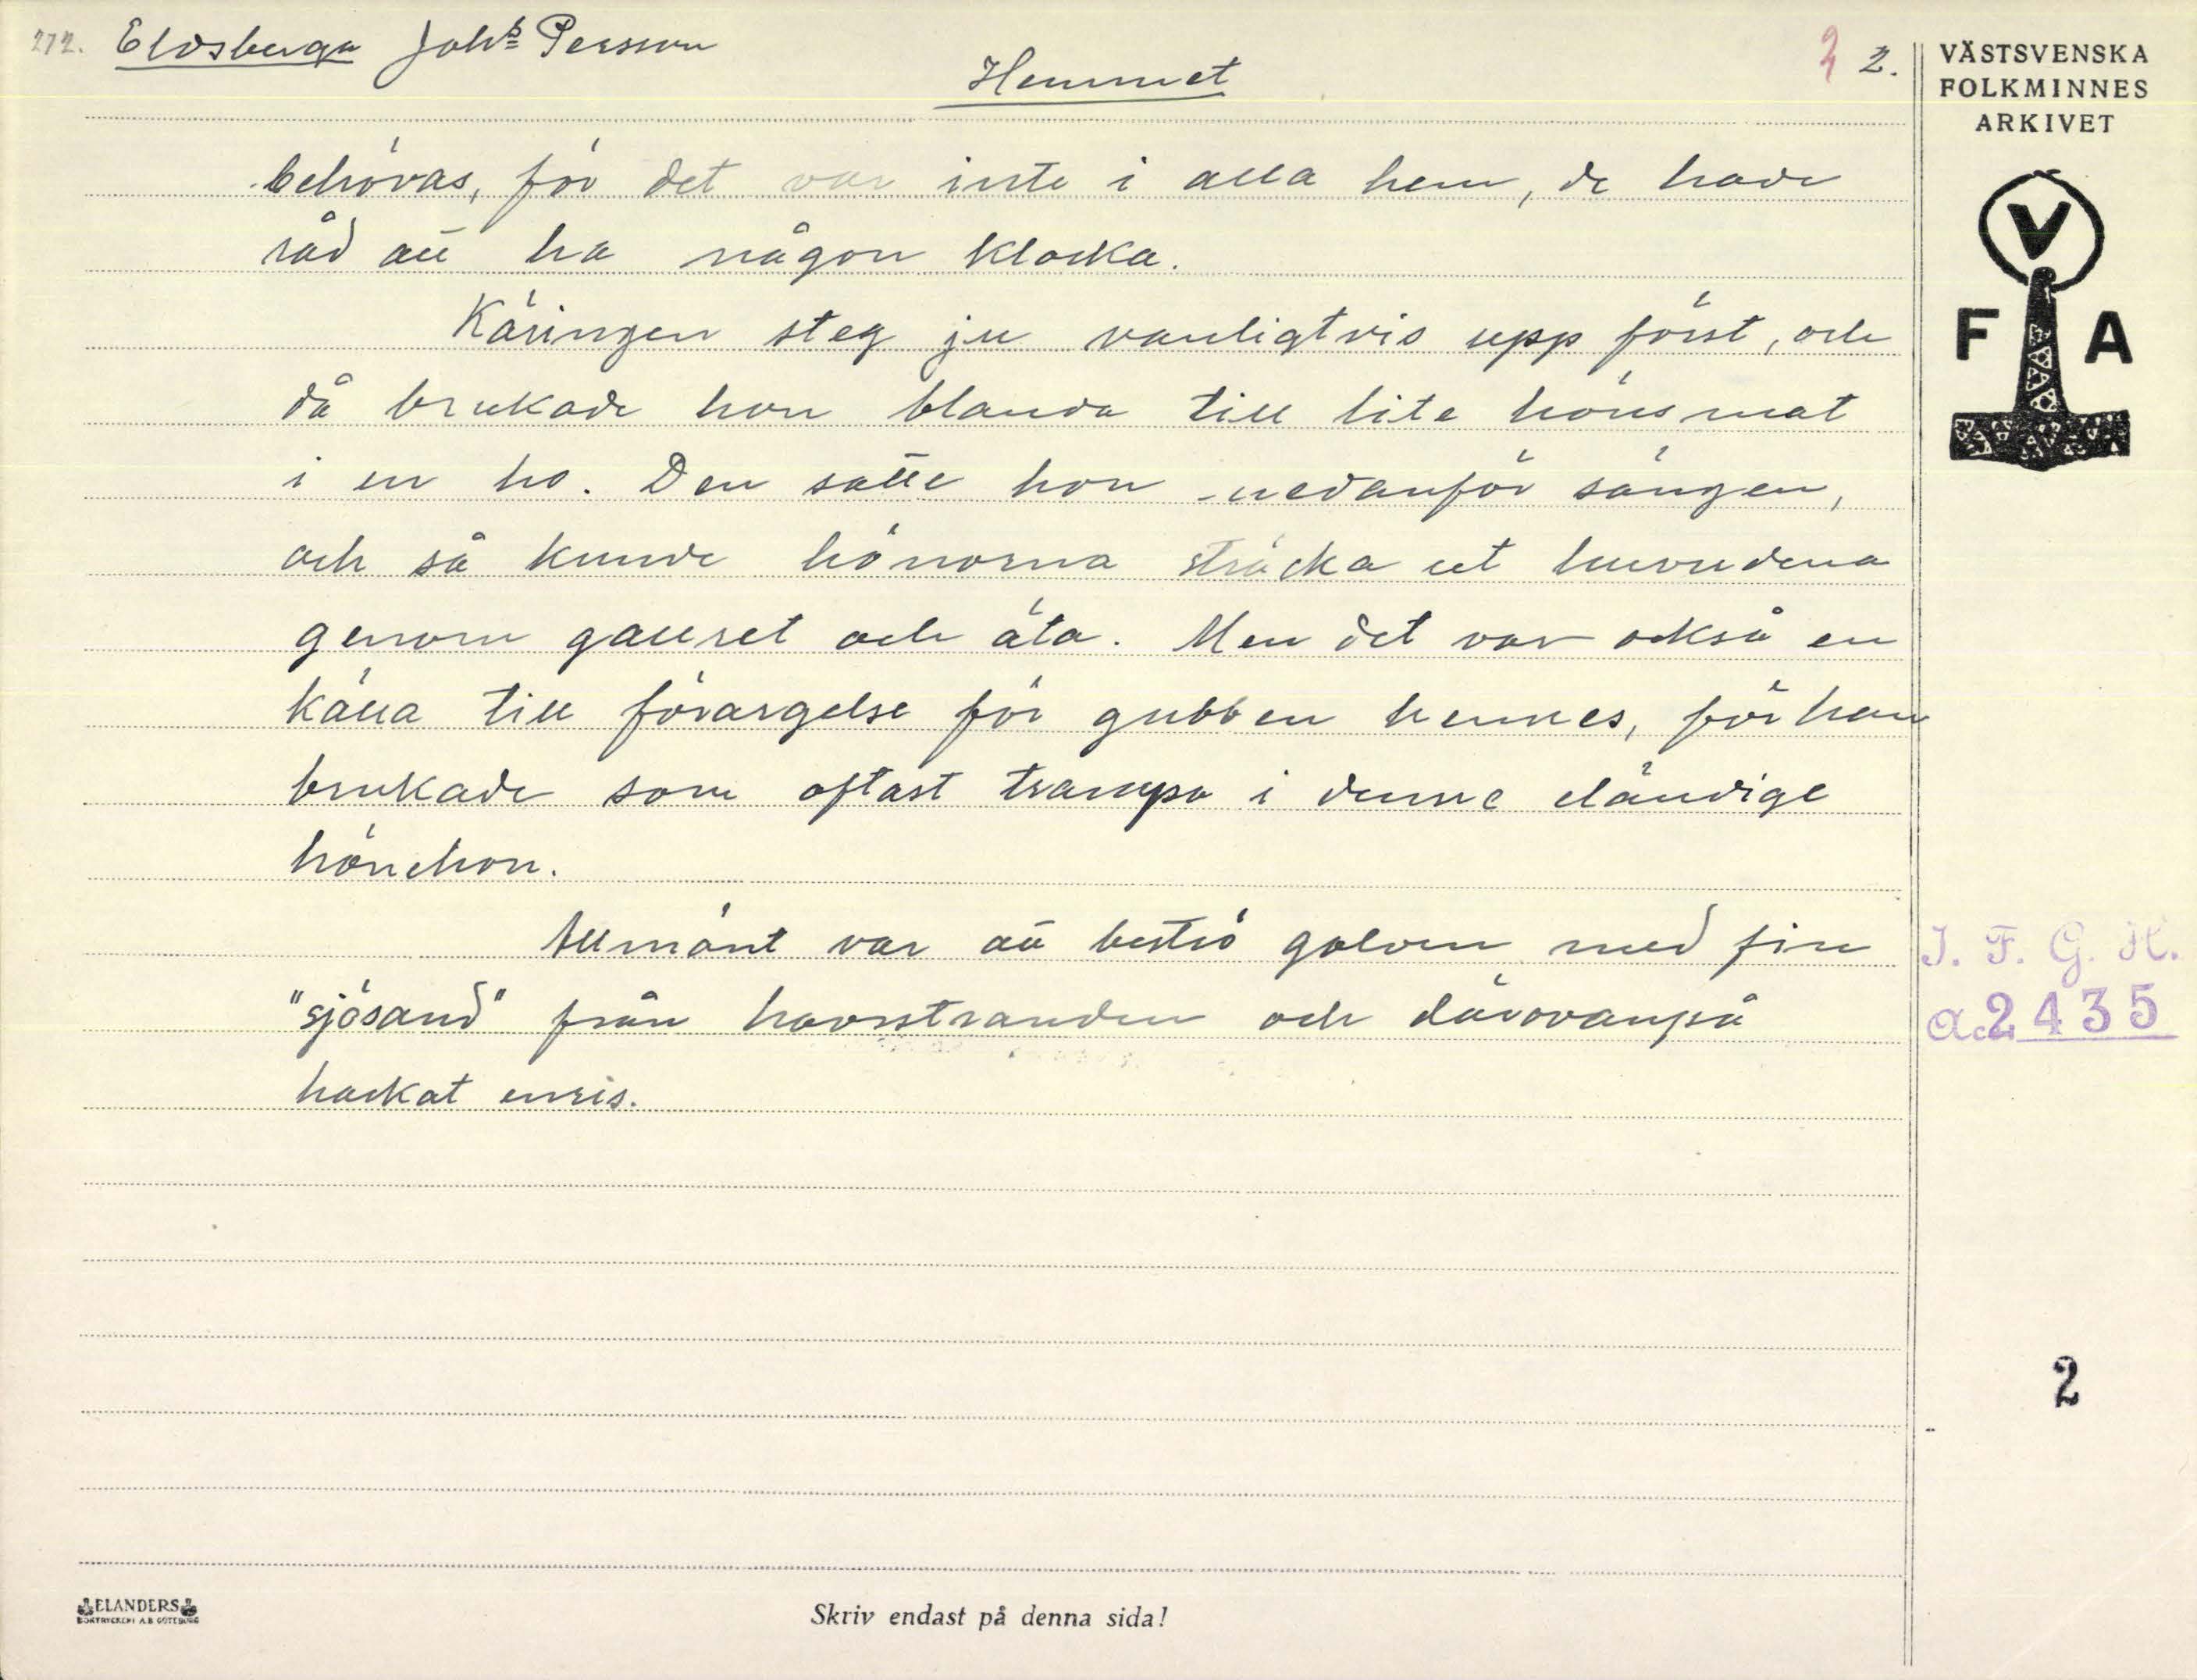 272. Eldsberga Johs Persson
Hemmet
2 2.
VÄSTSVENSKA
FOLKMINNES
ARKIVET
behövas, för det var inte i alla hem, de hade
råd att ha någon klocka.
Käringen steg ju vanligtvis upp först, och
då brukade hon blanda till lite hönsmat
i en ho. Den satte hon nedanför sängen,
och så kunde hönorna sträcka ut huvudena
genom gallret och äta. Men det var också en
källa till förargelse för gubben hennes, för han
brukade som oftast trampa i denne eländige
hönehon.
Allmänt var att beströ golven med fin
"sjösand" från havsstranden och därovanpå
hackat enris.
V
F A
I. F. G. H.
a.2435
2
ELANDERS
BOKTRYCKERI A.B. GÖTEBORG
Skriv endast på denna sida!